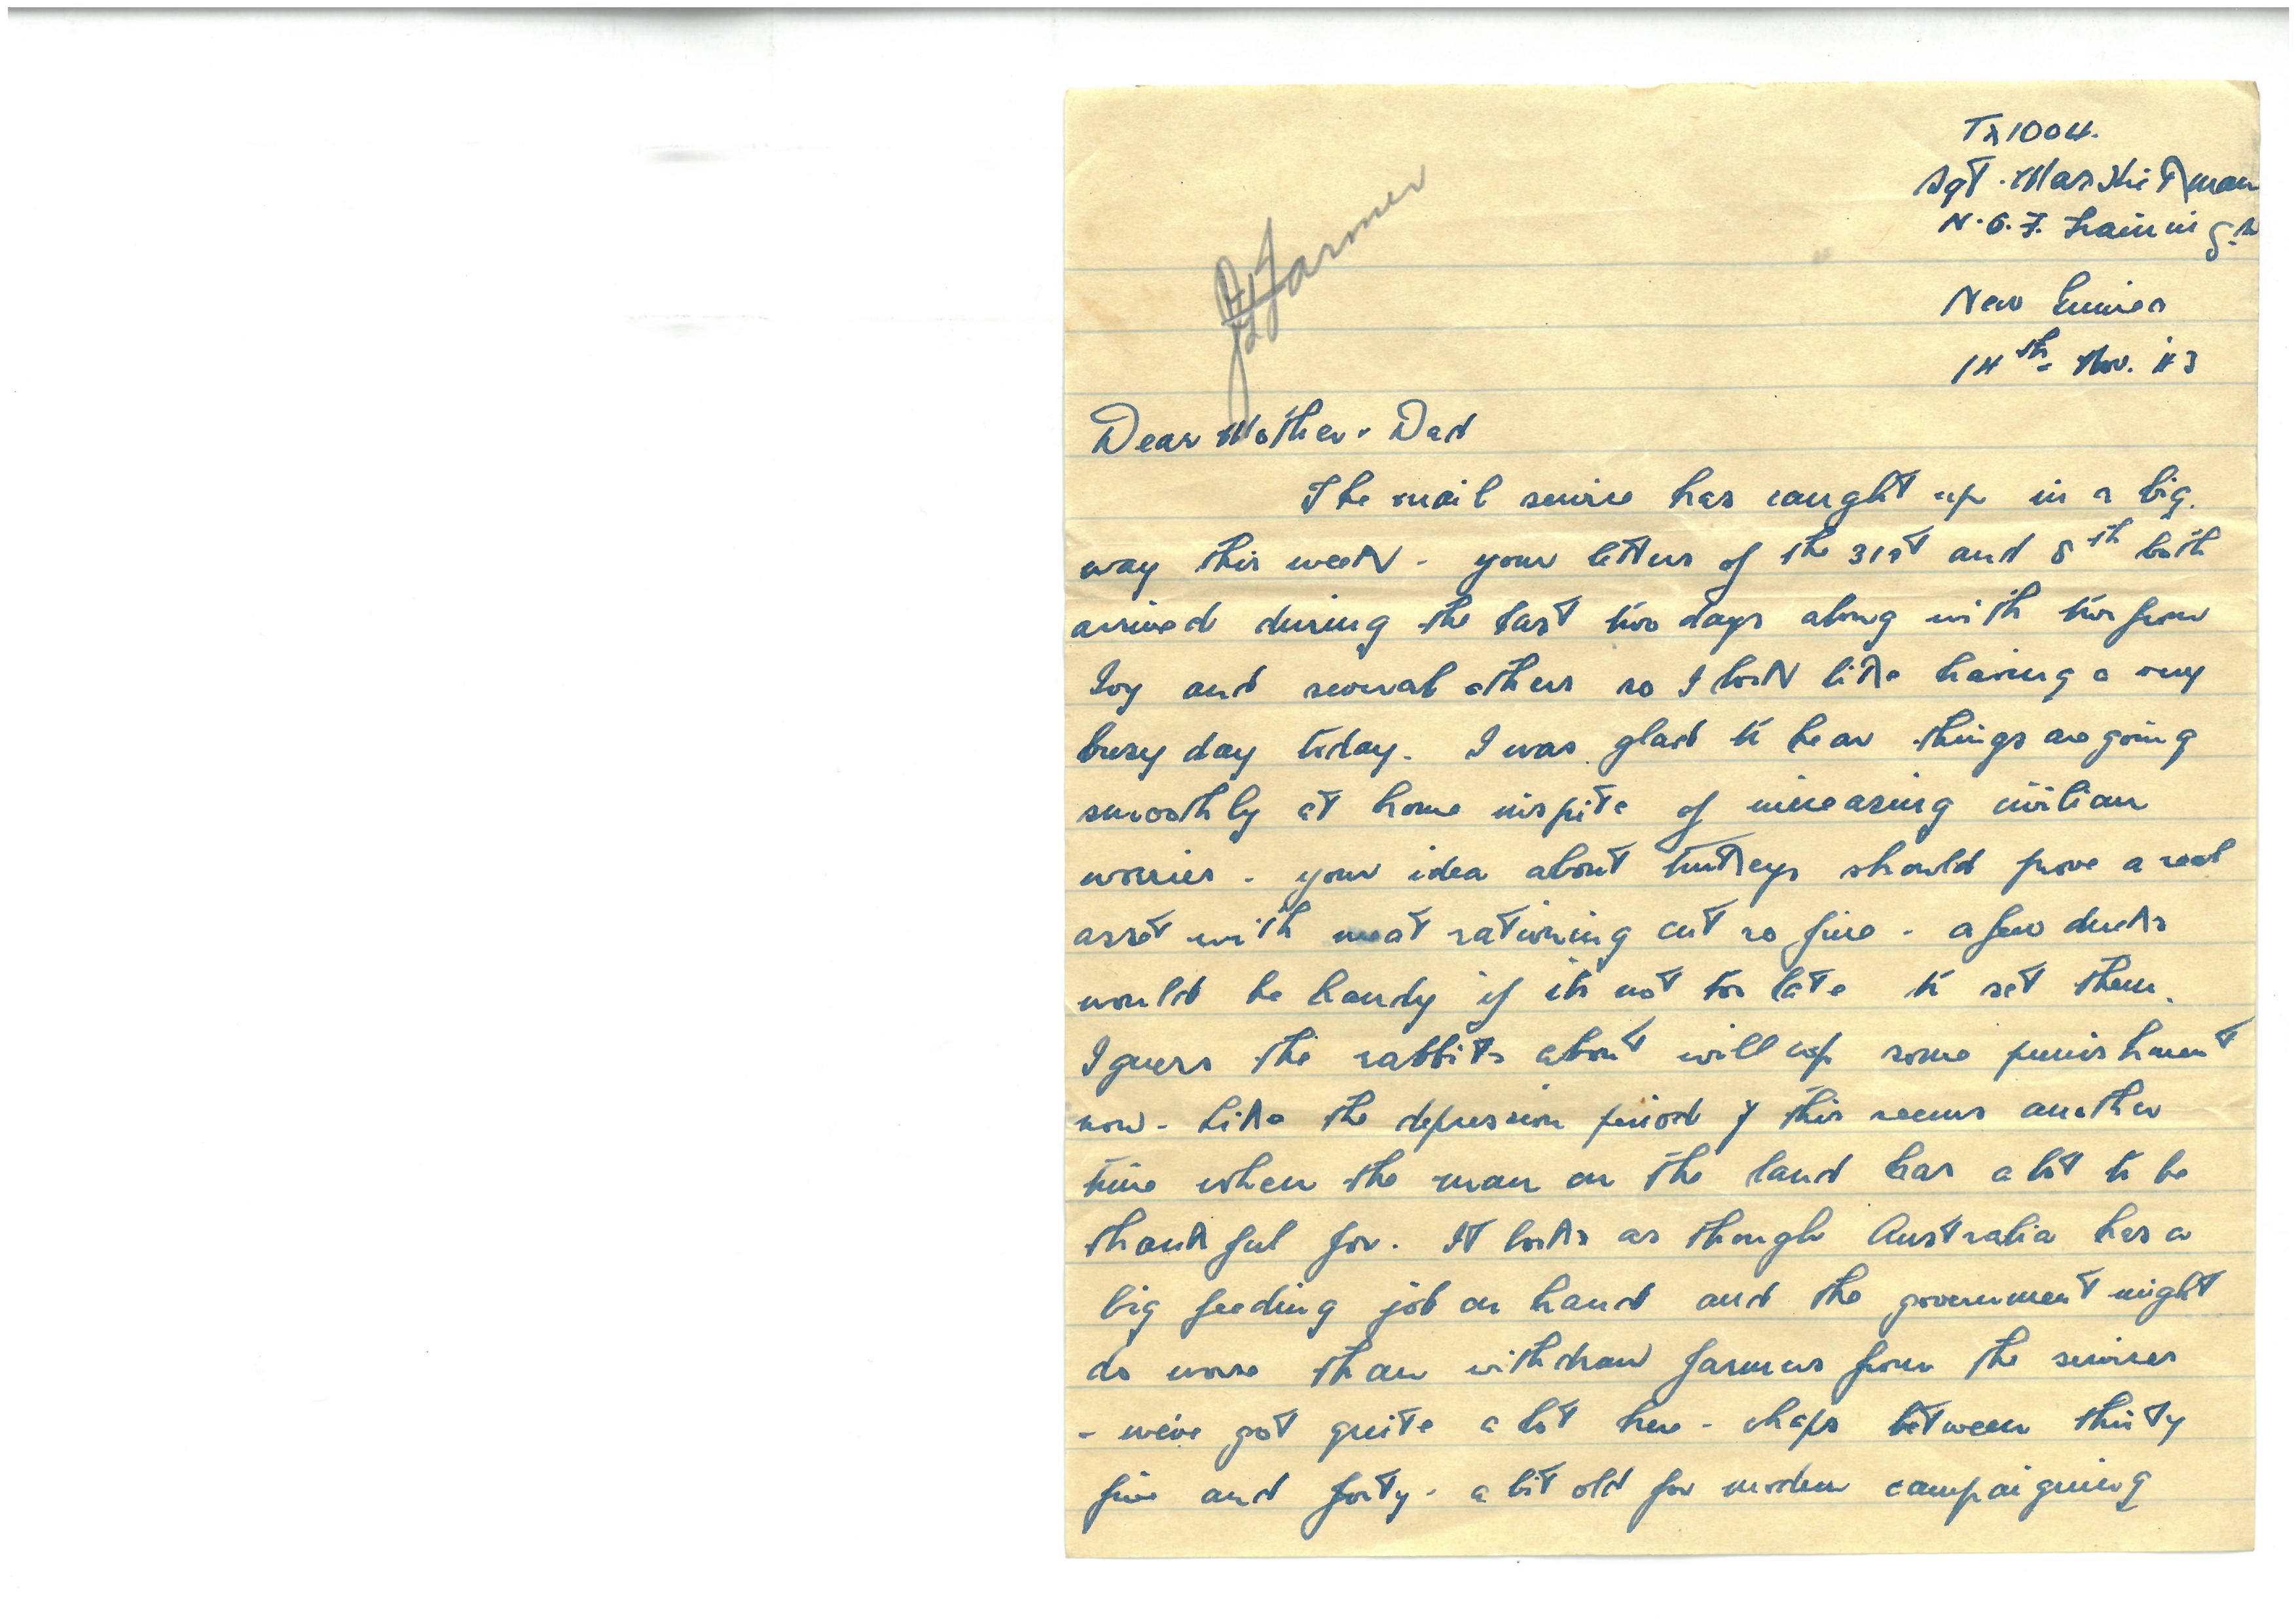 Tx1004.
Sgt. Max Hickman
N.G.F. Training S.
New Guinea
14th Nov. 43
Farmer
Dear Mother & Dad
The mail service has caught up in a big
way this week - your letters of the 31st and 8th both
arrived during the last two days along with two from
Ivy and several others so I look like having a very
busy day today. I was glad to hear things are going
smoothly at home inspite of increasing civilian
worries - your idea about turkeys should prove a real
asset with meat rationing cut so fine - a few ducks
would be handy if its not too late to set them.
I guess the rabbits about will cop some punishment
now - Like the depression period this seems another
time when the man on the land has a lot to be
thankful for. It looks as though Australia has a
big feeding job on hand and the government might
do worse than withdraw farmers from the services
- we've got quite a lot here - chaps between thirty
five and forty - a bit old for modern campaigning